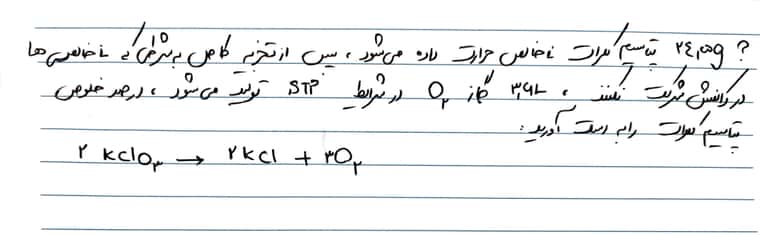 ? ۲۴٫۵g پتاسیم کلرات ناخالص حرارت داده می‌شود، پس از تجزیه کامل به شرطی که ناخالصی ها
در واکنش شرکت نکنند، ۳٫۹L گاز O۲ در شرایط STP تولید می‌شود، درصد خلوص
پتاسیم کلرات را به دست آورید:
۲ KClO۳ → ۲KCl + ۳O۲